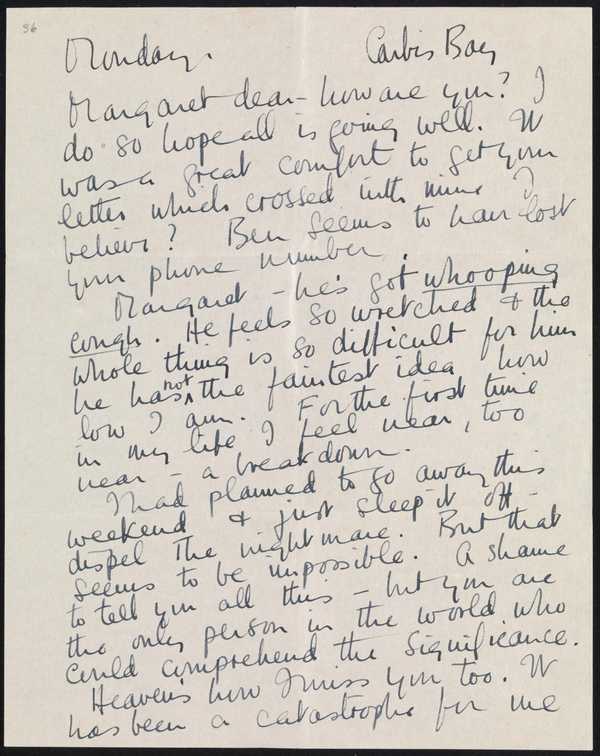 96
Monday. Carbis Bay
Margaret dear – how are you? I
do so hope all is going well. It
was a great comfort to get your
letter which crossed with mine I
believe? Ben seems to have lost
your phone number.
Margaret – he's got whooping
cough. He feels so wretched & the
whole thing is so difficult for him
he has not the faintest idea how
low I am. For the first time
in my life I feel near, too
near – a breakdown.
I had planned to go away this
weekend & just sleep it off –
dispel the nightmare. But that
seems to be impossible. A shame
to tell you all this – but you are
the only person in the world who
could comprehend the significance.
Heavens how I miss you too. It
has been a catastrophe for me